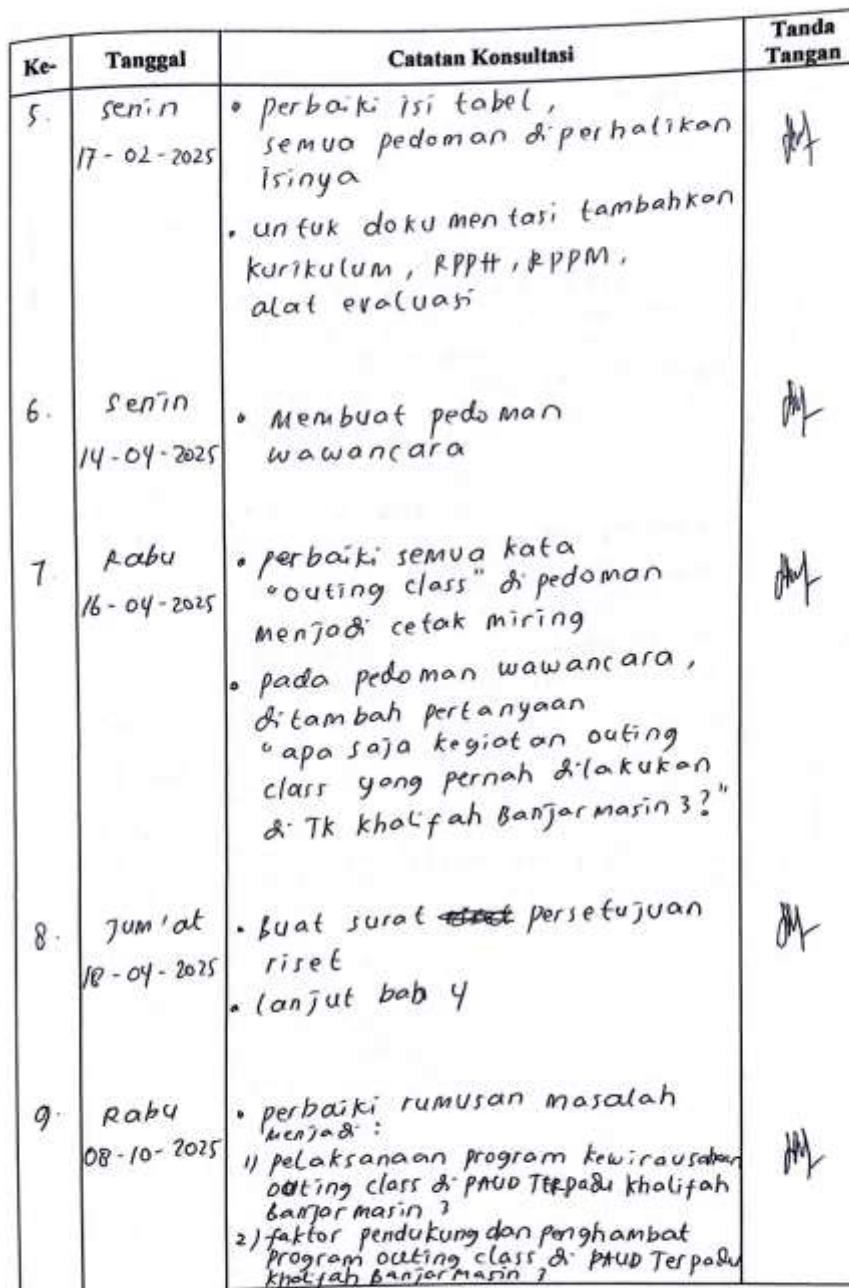 Ke- Tanggal Catatan Konsultasi Tanda Tangan
5. Senin • perbaiki isi tabel,
17-02-2025 semua pedoman diperhatikan
isinya
• untuk dokumentasi tambahkan
kurikulum, RPPH, RPPM,
alat evaluasi
6. Senin • Membuat pedoman
14-04-2025 wawancara
7. Rabu • perbaiki semua kata
16-04-2025 "outing class" di pedoman
menjadi cetak miring
• pada pedoman wawancara,
ditambah pertanyaan
"apa saja kegiatan outing
class yang pernah dilakukan
di TK Khalifah Banjarmasin 3?"
8. Jum'at • Buat surat persetujuan
18-04-2025 riset
• lanjut bab 4
9. Rabu • perbaiki rumusan masalah
08-10-2025 menjadi :
1) pelaksanaan program kewirausahaan
outing class di PAUD Terpadu Khalifah
Banjarmasin 3
2) faktor pendukung dan penghambat
program outing class di PAUD Terpadu
Khalifah Banjarmasin 3